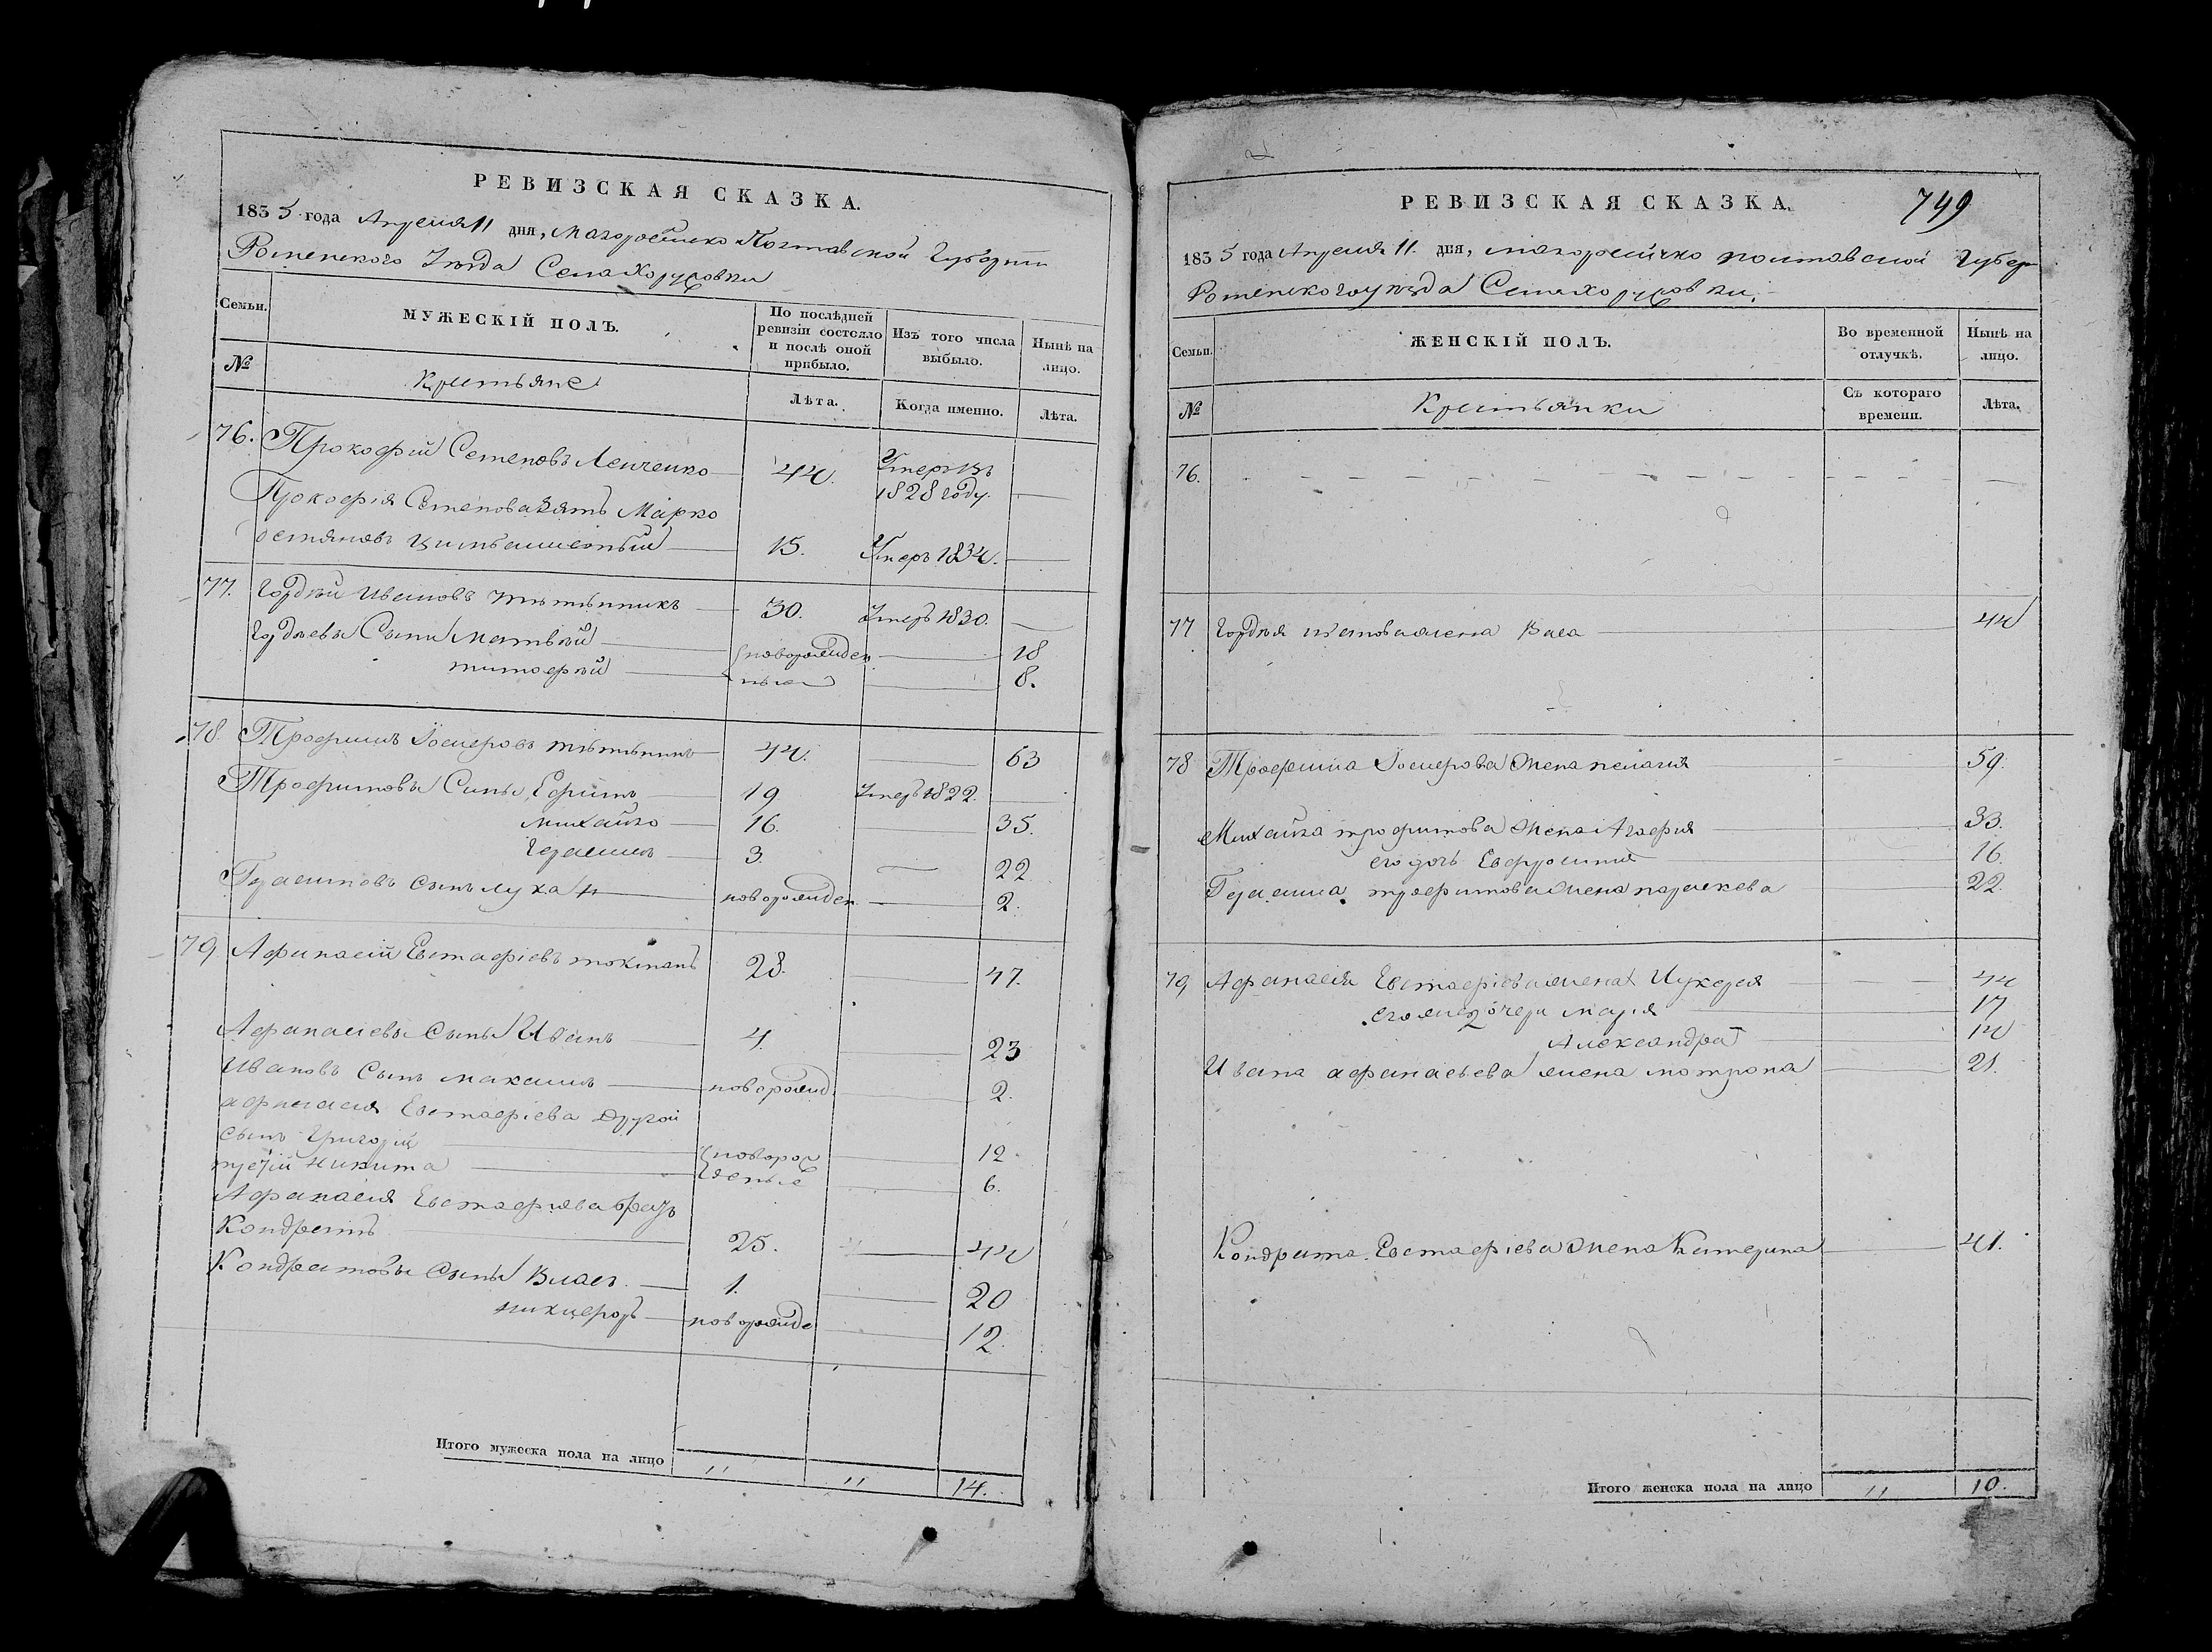 РЕВИЗСКАЯ СКАЗКА.
1835 года Апреля 11 дня, Малоросійско Полтавской Губерніи
Роменского Уѣзда Села Хоружовки
Семьи.
МУЖЕСКІЙ ПОЛЪ.
По послѣдней ревизіи состояло и послѣ оной прибыло.
Изъ того числа выбыло.
Нынѣ на лицо.
№
Крестьяне
Лѣта.
Когда именно.
Лѣта.
76. Прокофій Семеновъ 44. Умеръ въ 1828 году.
Прокофія Семенова Зять Марко
15. Умеръ 1834.
77. Гордѣй Ивановъ 30. Умеръ 1830.
Гордѣевы Сыны Матвѣй новорожден 18
тимофѣй ные 8.
78. Трофимъ 44. 63
Трофимовы Сыны Ефимъ 19 Умеръ 1822.
михайло 16. 35.
Герасимъ 3. 22
Герасимовъ сынъ лука новорожден 2.
79 Афанасій Евстафіевъ 28. 47.
Афанасіевы Сыны Иванъ 4. 23
Ивановъ Сынъ максимъ новорожд. 2.
афанасія Евстафіева другой
сынъ Григорій новорож 12.
третій никита деные 6.
Афанасія Евстафіева братъ
Кондратъ 25. 44
Кондратовы Сыны Власъ 1. 20
никифоръ новорожде 12.
Итого мужеска пола на лицо " " 14.
РЕВИЗСКАЯ СКАЗКА.
749
1835 года Апреля 11. дня, малоросійско полтавской Губер
Роменского уѣзда Села Хоружовки.
Семьи.
ЖЕНСКІЙ ПОЛЪ.
Во временной отлучкѣ.
Нынѣ на лицо.
№
Крестьянки
Съ котораго времени.
Лѣта.
76.
77 Гордѣя жена Васа 44
78 Трофима жена пелагия 59.
Михайла трофимова жена Агафия 33.
его дочь Евфросиния 16.
Герасима трофимова жена параскева 22.
79 Афанасія Евстафіева жена Лукерия 44
его же 2 дочери мария 17
Александра 14
Ивана афанасьева жена мотрона 21.
Кондрата Евстафіева жена Катерина 41.
Итого женска пола на лицо " 10.